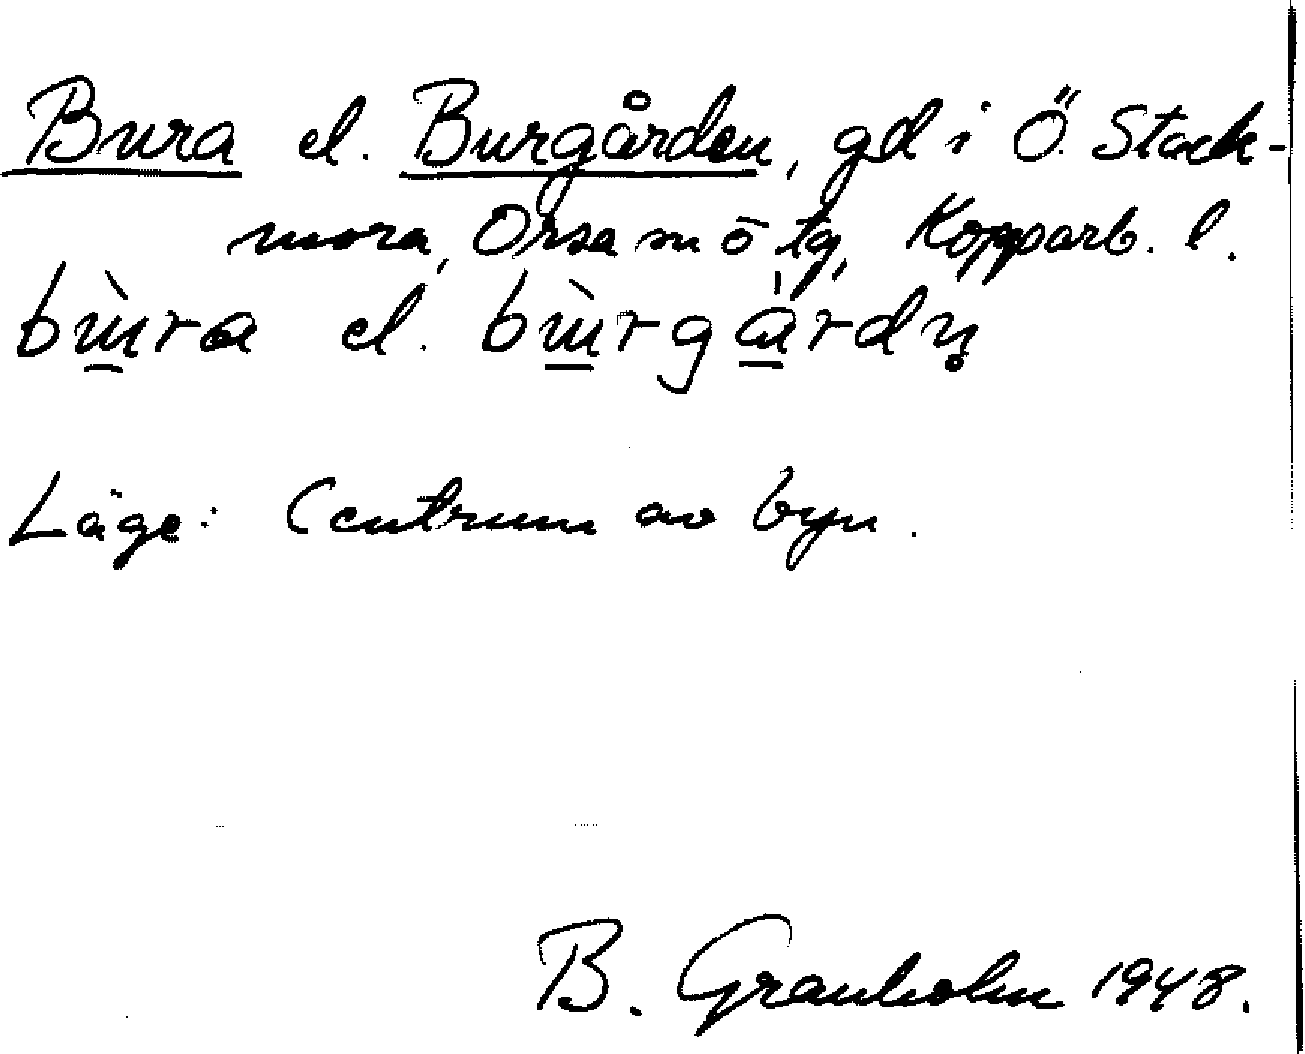 Bura el. Burgården, gd i Ö. Stack-
mora, Orsa sn o tg, Kopparb. l.
bùra el. bùrgàrdn̥
Läge: Centrum av byn.
B. Granholm 1948.